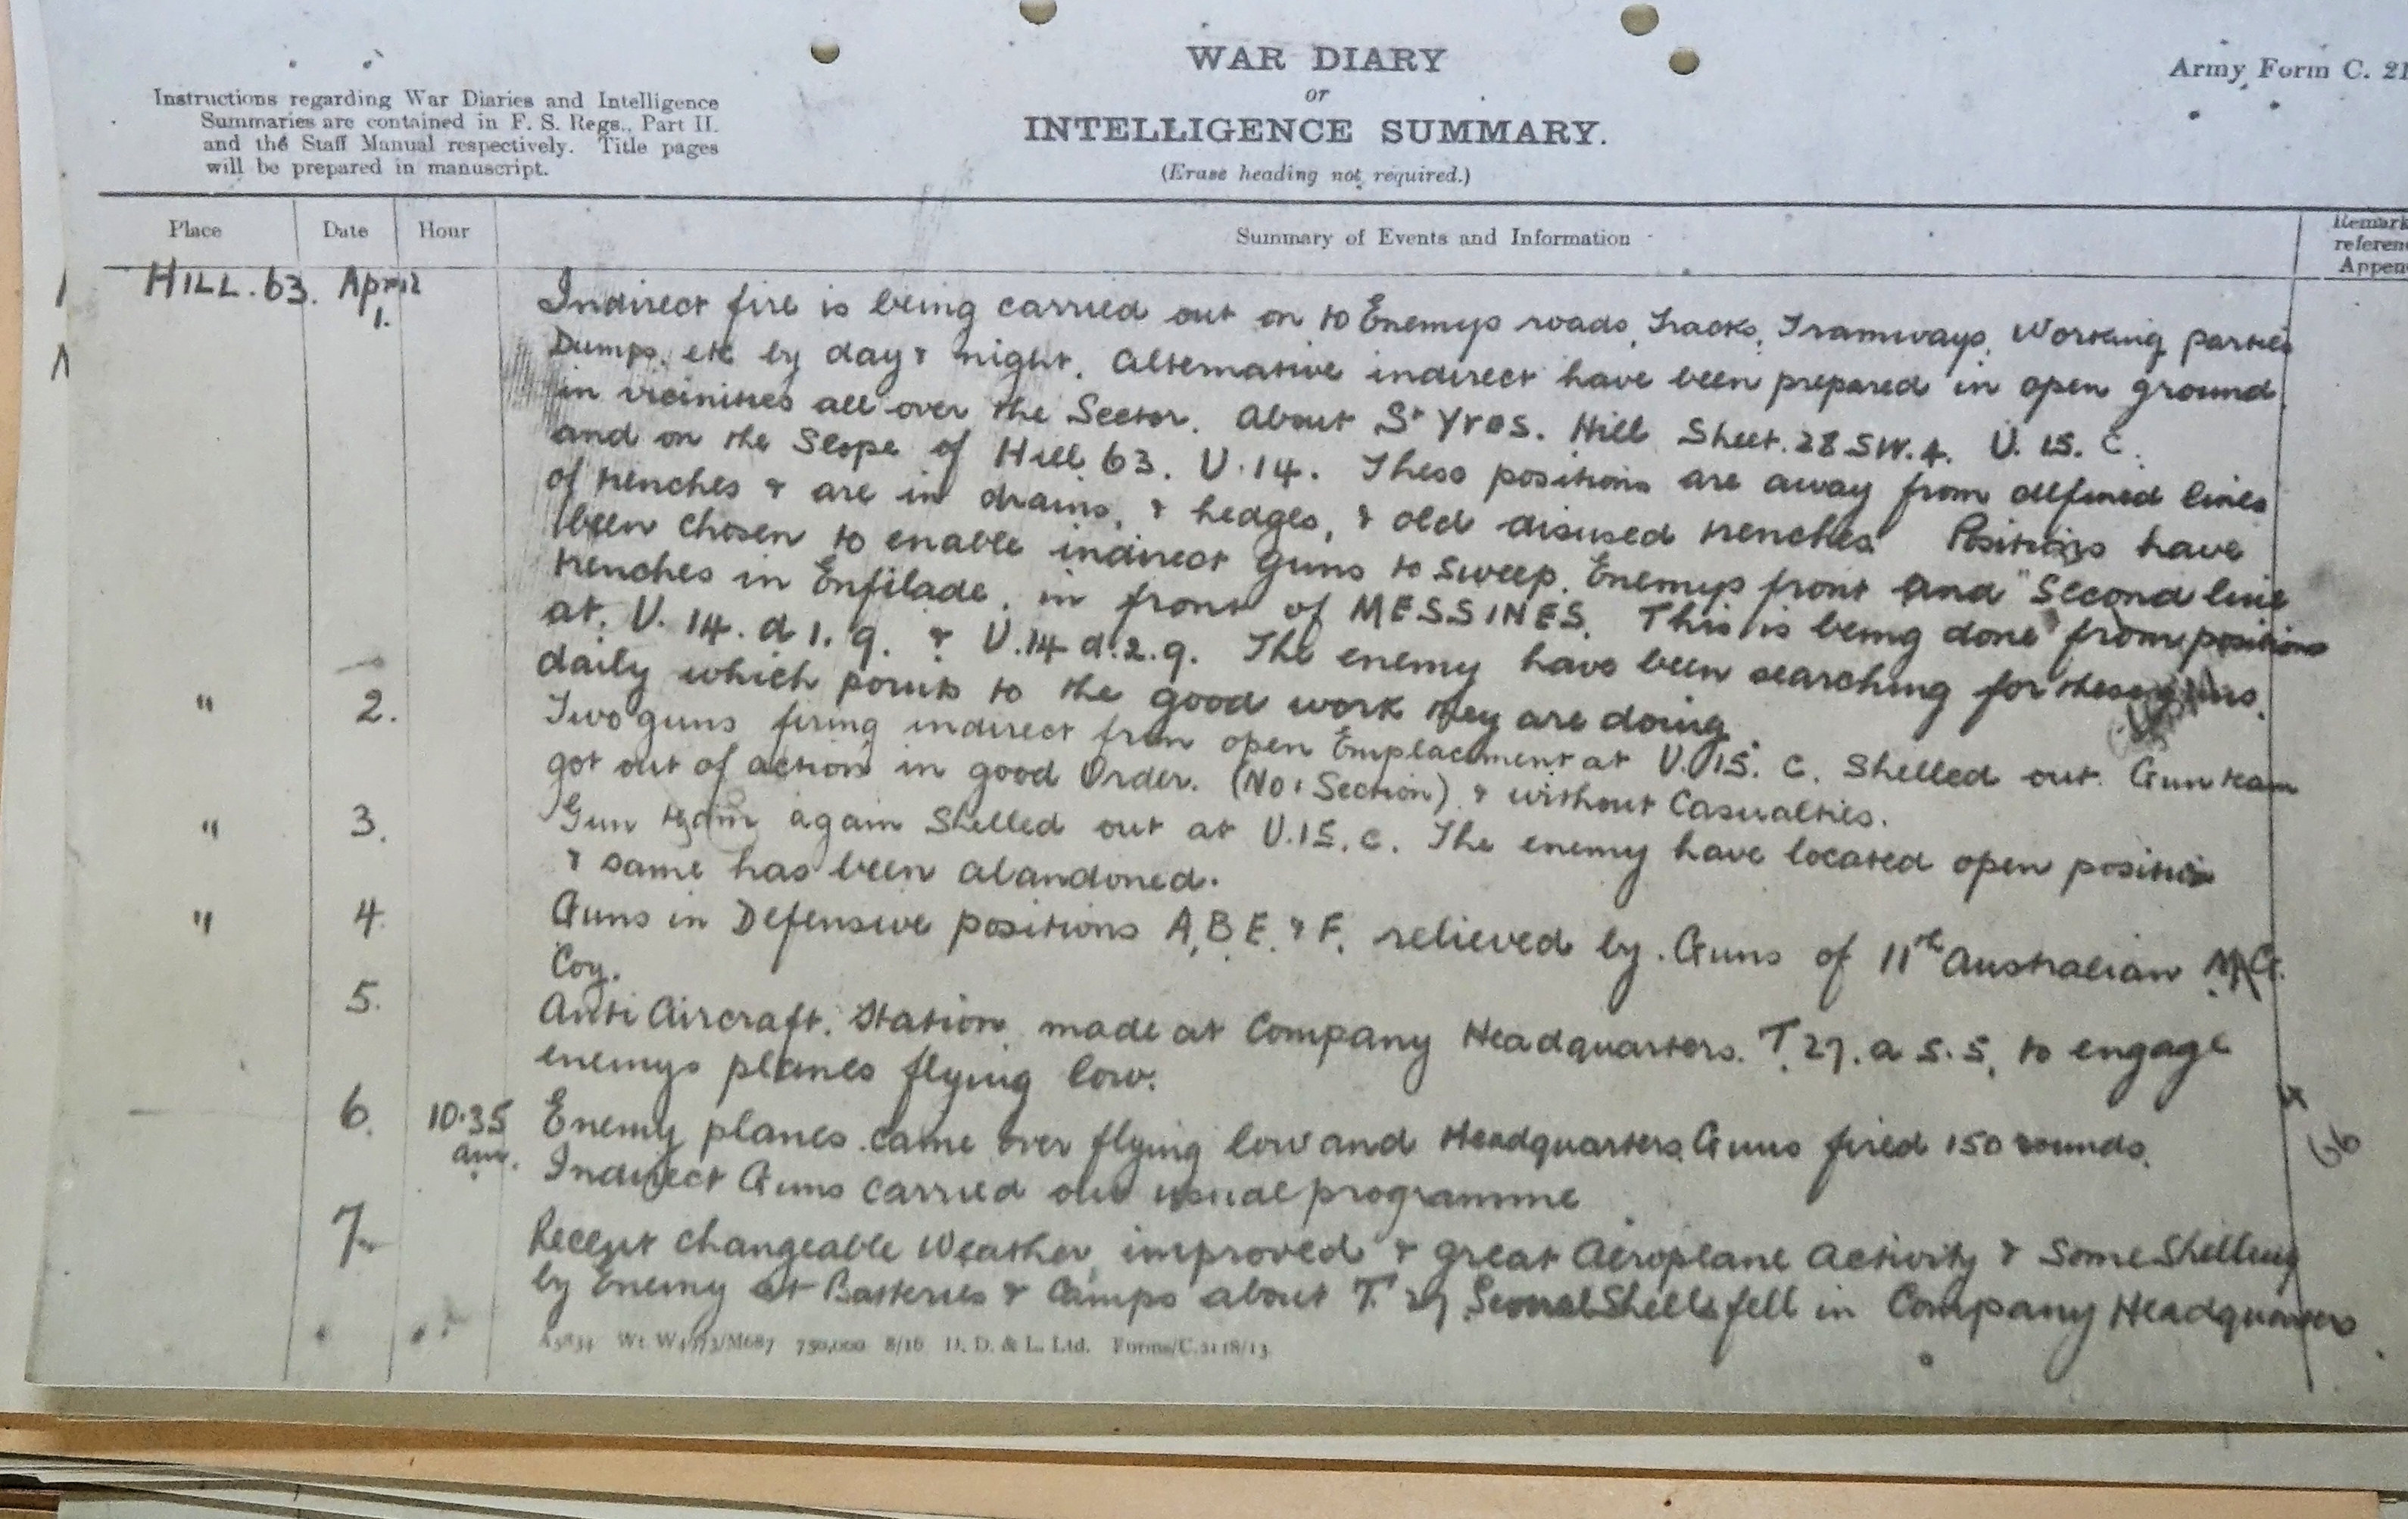 WAR DIARY
or
INTELLIGENCE SUMMARY.
(Erase heading not required.)
Army Form C. 21
Instructions regarding War Diaries and Intelligence
Summaries are contained in F. S. Regs., Part II.
and the Staff Manual respectively. Title pages
will be prepared in manuscript.
Place Date Hour Summary of Events and Information
Remark
referen
Appen
HILL. 63. April
1.
Indirect fire is being carried out on to Enemys roads, Tracks, Tramways, Working parties
Dumps, etc by day & night. Alternative indirect have been prepared in open ground
in vicinities all over the Sector. About St Yves. Hill Sheet. 28 SW. 4. U. 15. C.
and on the Slope of Hill 63. U. 14. These positions are away from defined lines
of trenches & are in drains, & hedges, & old disused trenches. Positions have
been chosen to enable indirect guns to sweep. Enemys front and Second line
trenches in Enfilade, in front of MESSINES. This is being done from positions
at. U. 14. d 1. 9. & U. 14 d. 2. 9. The enemy have been searching for these guns.
daily which points to the good work they are doing.
" 2. Two guns firing indirect from open Emplacement at U. 15. c. Shelled out. Gun team
got out of action in good Order. (No 1 Section) & without Casualties.
" 3. Gun team again Shelled out at U. 15. c. The enemy have located open position
& same has been abandoned.
" 4. Guns in Defensive positions A, B, E, & F, relieved by. Guns of 11th Australian M.G.
Coy.
5. Anti Aircraft. Station. made at Company Headquarters. T. 27. a 5. 5, to engage
enemys planes flying low.
6. 10.35 am. Enemy planes came over flying low and Headquarters. Guns fired 150 rounds.
Indirect Guns carried out usual programme
7. Recent changeable Weather, improved & great Aeroplane Activity & Some Shelling
by Enemy at Batteries & Camps about T. 27 Several Shells fell in Company Headquarters
66
750,000 8/16 D. D. & L. Ltd. Forms/C.2118/13.